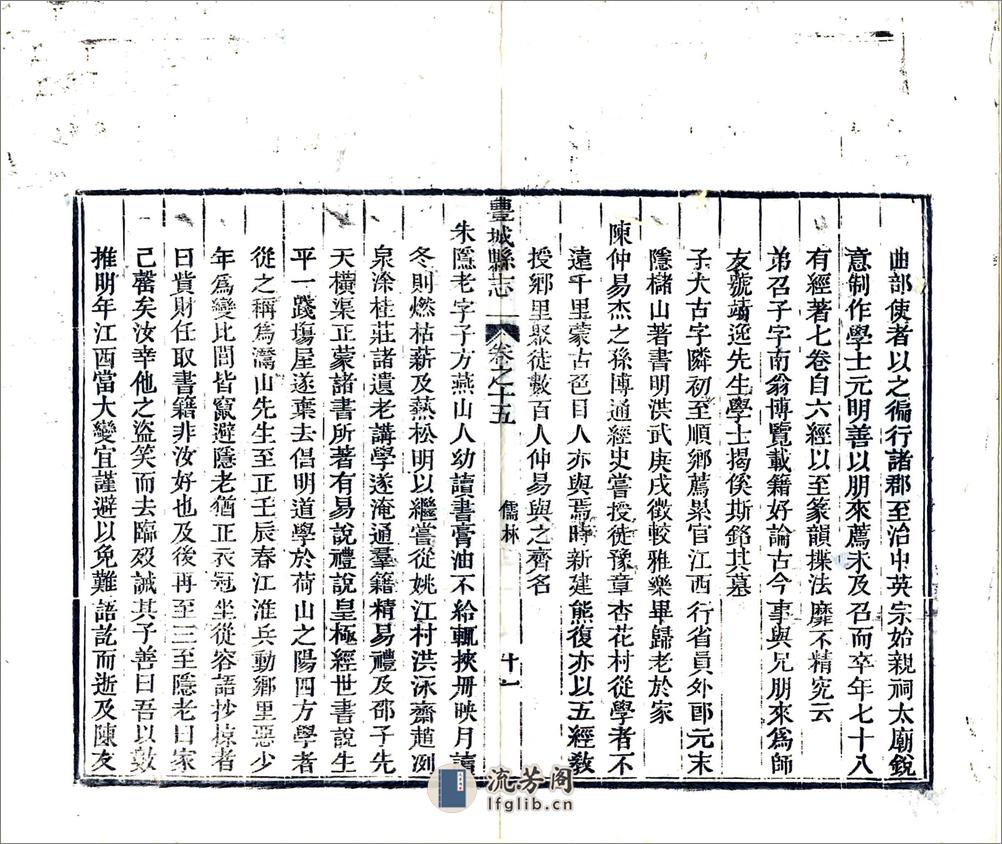 曲部使者以之徧行諸郡至治中英宗始親祠太廟銳
意制作學士元明善以朋來薦未及召而卒年七十八
有經著七卷自六經以至篆韻揲法靡不精究云
弟召子字南翁博覽載籍好論古今事與兄朋來為師
友號靖逸先生學士揭傒斯銘其墓
子大古字隣初至順鄉薦累官江西行省員外郎元末
隱儲山著書明洪武庚戌徵較雅樂畢歸老於家
陳仲易杰之孫博通經史嘗授徒豫章杏花村從學者不
遠千里蒙古色目人亦與焉時新建熊復亦以五經敎
授鄉里聚徒數百人仲易與之齊名
豐城縣志
卷之十五
儒林
十一
朱隱老字子方燕山人幼讀書膏油不給輒挾冊映月讀
冬則燃枯薪及爇松明以繼嘗從姚江村洪泳齋趙澗
泉涂桂莊諸遺老講學遂淹通羣籍精易禮及邵子先
天橫渠正蒙諸書所著有易說禮說皇極經世書說生
平一踐塲屋遂棄去倡明道學於荷山之陽四方學者
從之稱為灊山先生至正壬辰春江淮兵動鄉里惡少
年為變比閭皆竄避隱老猶正衣冠坐從容語抄掠者
曰貲財任取書籍非汝好也及後再至三至隱老曰家
已罄矣汝幸他之盜笑而去臨歿誡其子善曰吾以數
推明年江西當大變宜謹避以免難語訖而逝及陳友
流芳阁
lfglib.cn